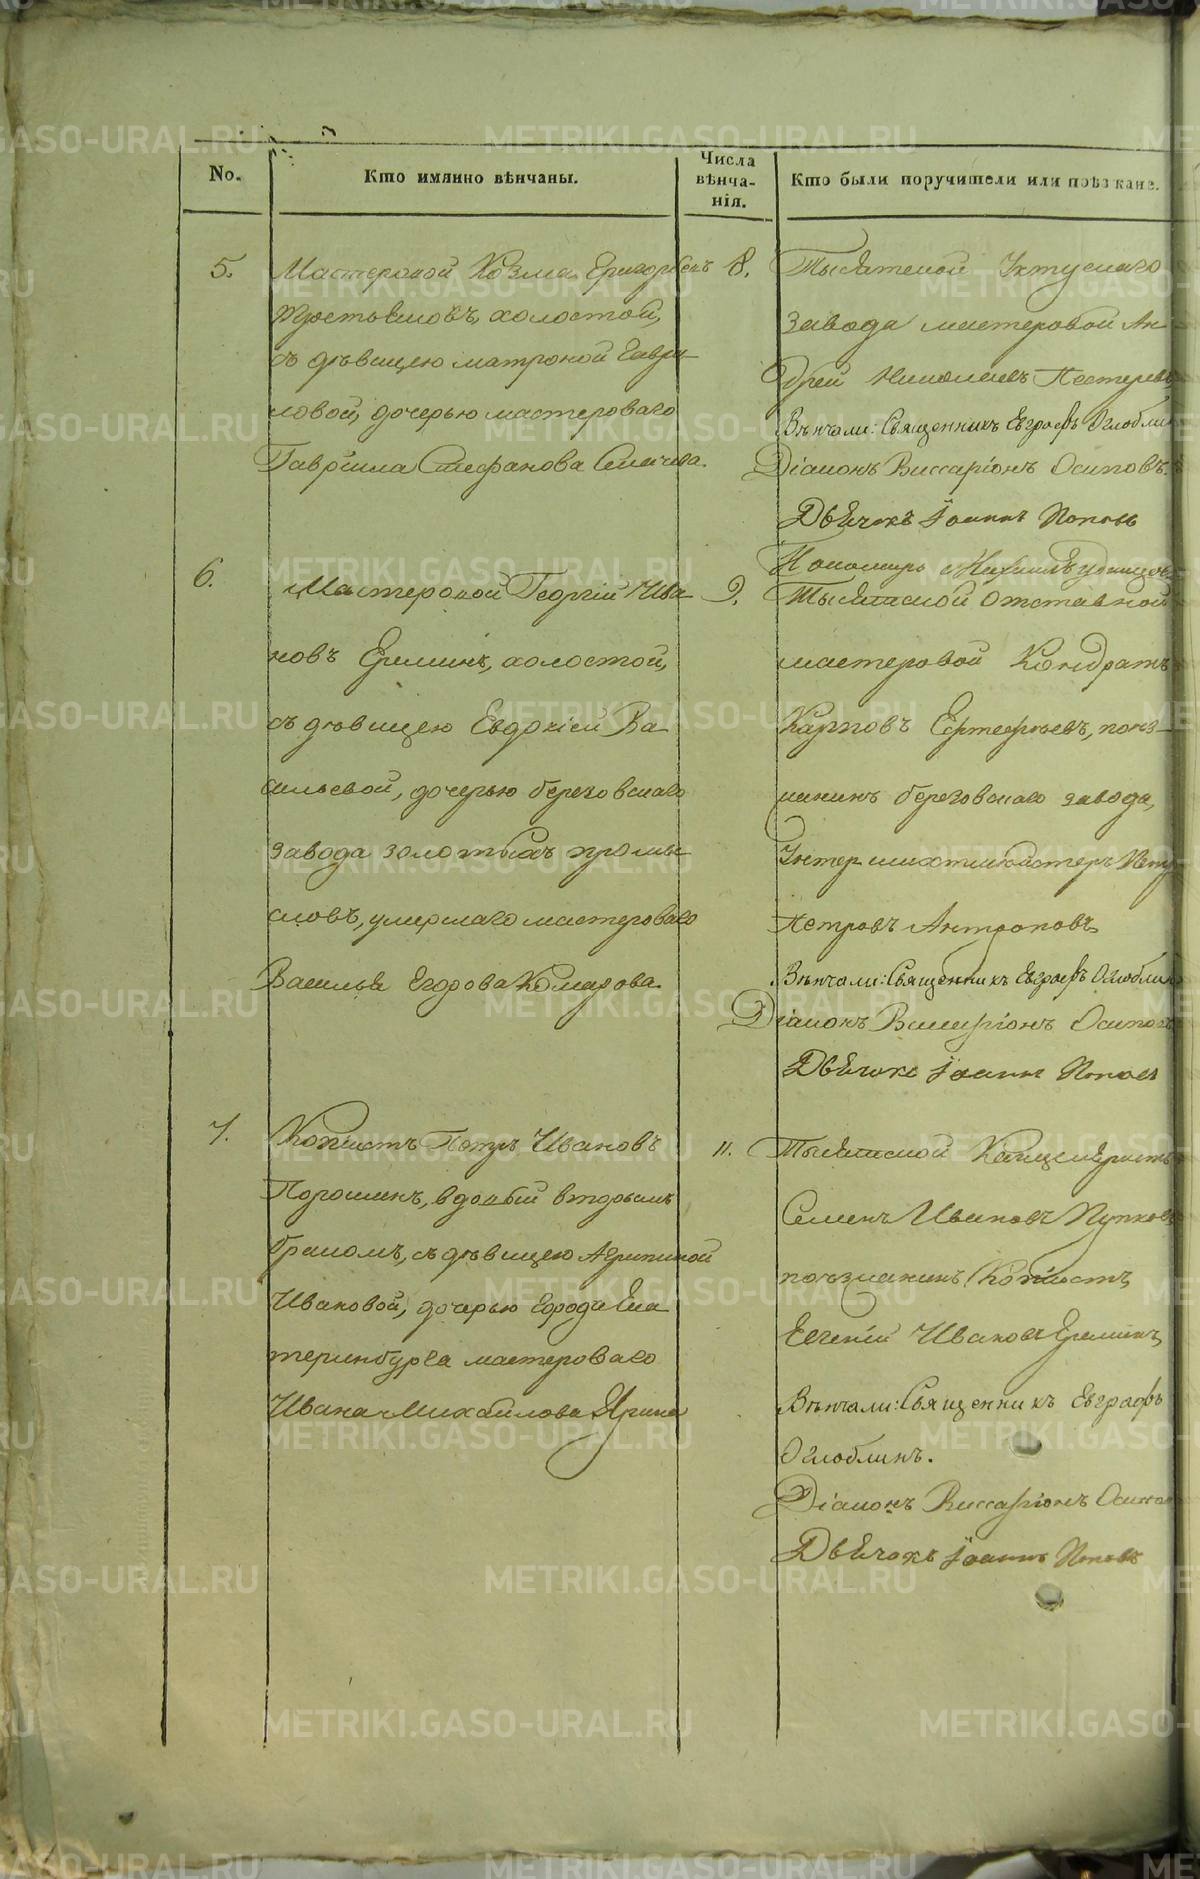 No.
Кто имянно вѣнчаны.
Числа
вѣнча-
нія.
Кто были поручители или поѣзжане.
5.
Мастеровой Козма Григорьевъ
холостой,
съ дѣвицею Матроной Гаври-
ловой, дочерью мастероваго
Гавріила Стефанова
8.
Тысятской Уктускаго
завода мастеровой Ан-
дрей Николаевъ Пестеревъ
Вѣнчали: Священникъ Евграфъ Оглоблин
Діаконъ Виссаріонъ Осиповъ.
Дьячокъ Іоаннъ Поповъ
Пономарь Михаилъ
6.
Мастеровой Георгій Ива-
новъ Ереминъ, холостой,
съ дѣвицею Евдокіей Ва-
сильевой, дочерью березовскаго
завода золотыхъ промы-
словъ, умершаго мастероваго
Василья Егорова Комарова
9.
Тысятской отставной
мастеровой Кондратъ
Карповъ поѣз-
жанинъ березовскаго завода,
Унтер шихтмейстеръ Петр
Петровъ Антроповъ
Вѣнчали: Священникъ Евграфъ Оглоблин
Діаконъ Виссаріонъ Осипов
Дьячокъ Іоаннъ Поповъ
7.
Копіистъ Петръ Ивановъ
Порошинъ, вдовый вторымъ
бракомъ, съ дѣвицею Агрипиной
Ивановой, дочерью города Ека-
теринбурга мастероваго
Ивана Михайлова Ярина
11.
Тысятской Канцеляристъ
Семенъ Ивановъ Пупков
поѣзжанинъ Копіистъ
Евгений Ивановъ Ереминъ,
Вѣнчали: Священникъ Евграфъ
Оглоблинъ.
Діаконъ Виссаріонъ Осипов
Дьячокъ Іоаннъ Поповъ
METRIKI.GASO-URAL.RU